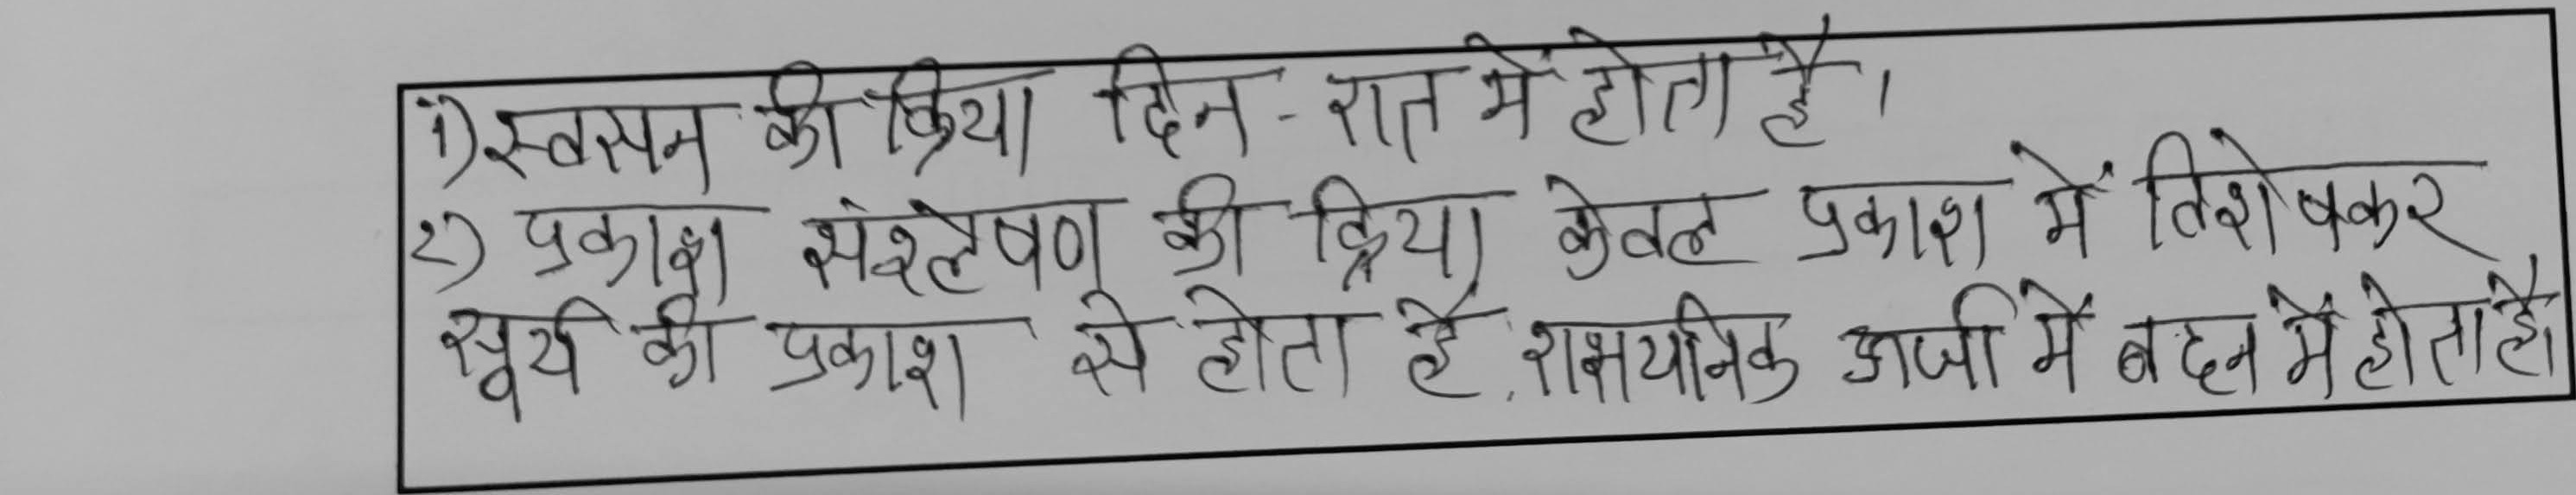 1) स्वसन की क्रिया दिन-रात में होता है।
2) प्रकाश संश्लेषण की क्रिया केवल प्रकाश में विशेषकर
सूर्य की प्रकाश से होता है, रासयनिक ऊर्जा में बदन में होता है।